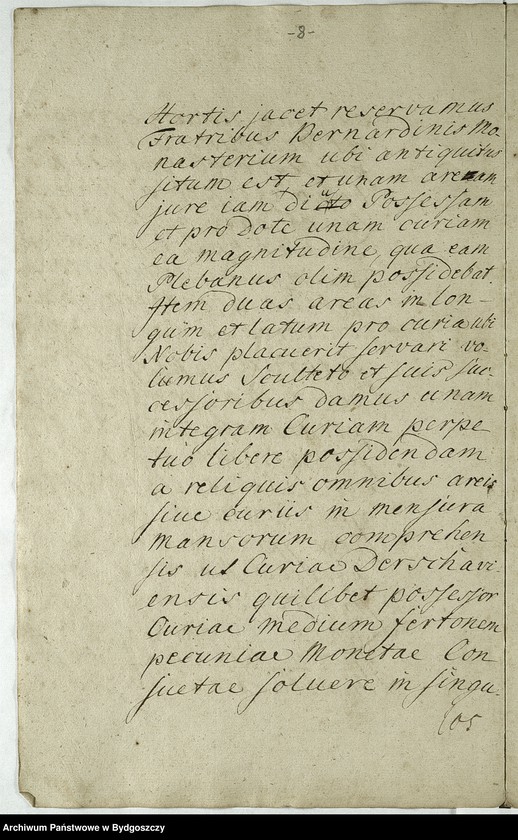 -8-
Hortis jacet reservamus
Fratribus Bernardinis Mo-
nasterium ubi antiquitus
situm est et unam aream
jure iam dicto Possessam
et pro dote unam curiam
ea magnitudine, qua eam
Plebanus olim possidebat.
Item duas areas in lon-
gum et latum pro curia ubi
Nobis placuerit servari vo-
lumus Sculteto et suis suc-
cessoribus damus unam
integram Curiam perpe
tuo libere possidendam
a reliquis omnibus areis
siue curiis in mensura
mansorum comprehen
sis ut Curiae Derschavi-
ensis quilibet possessor
Curiae medium fertonem
pecuniae Monetae Con
suetae soluere in singu-
los
Archiwum Państwowe w Bydgoszczy